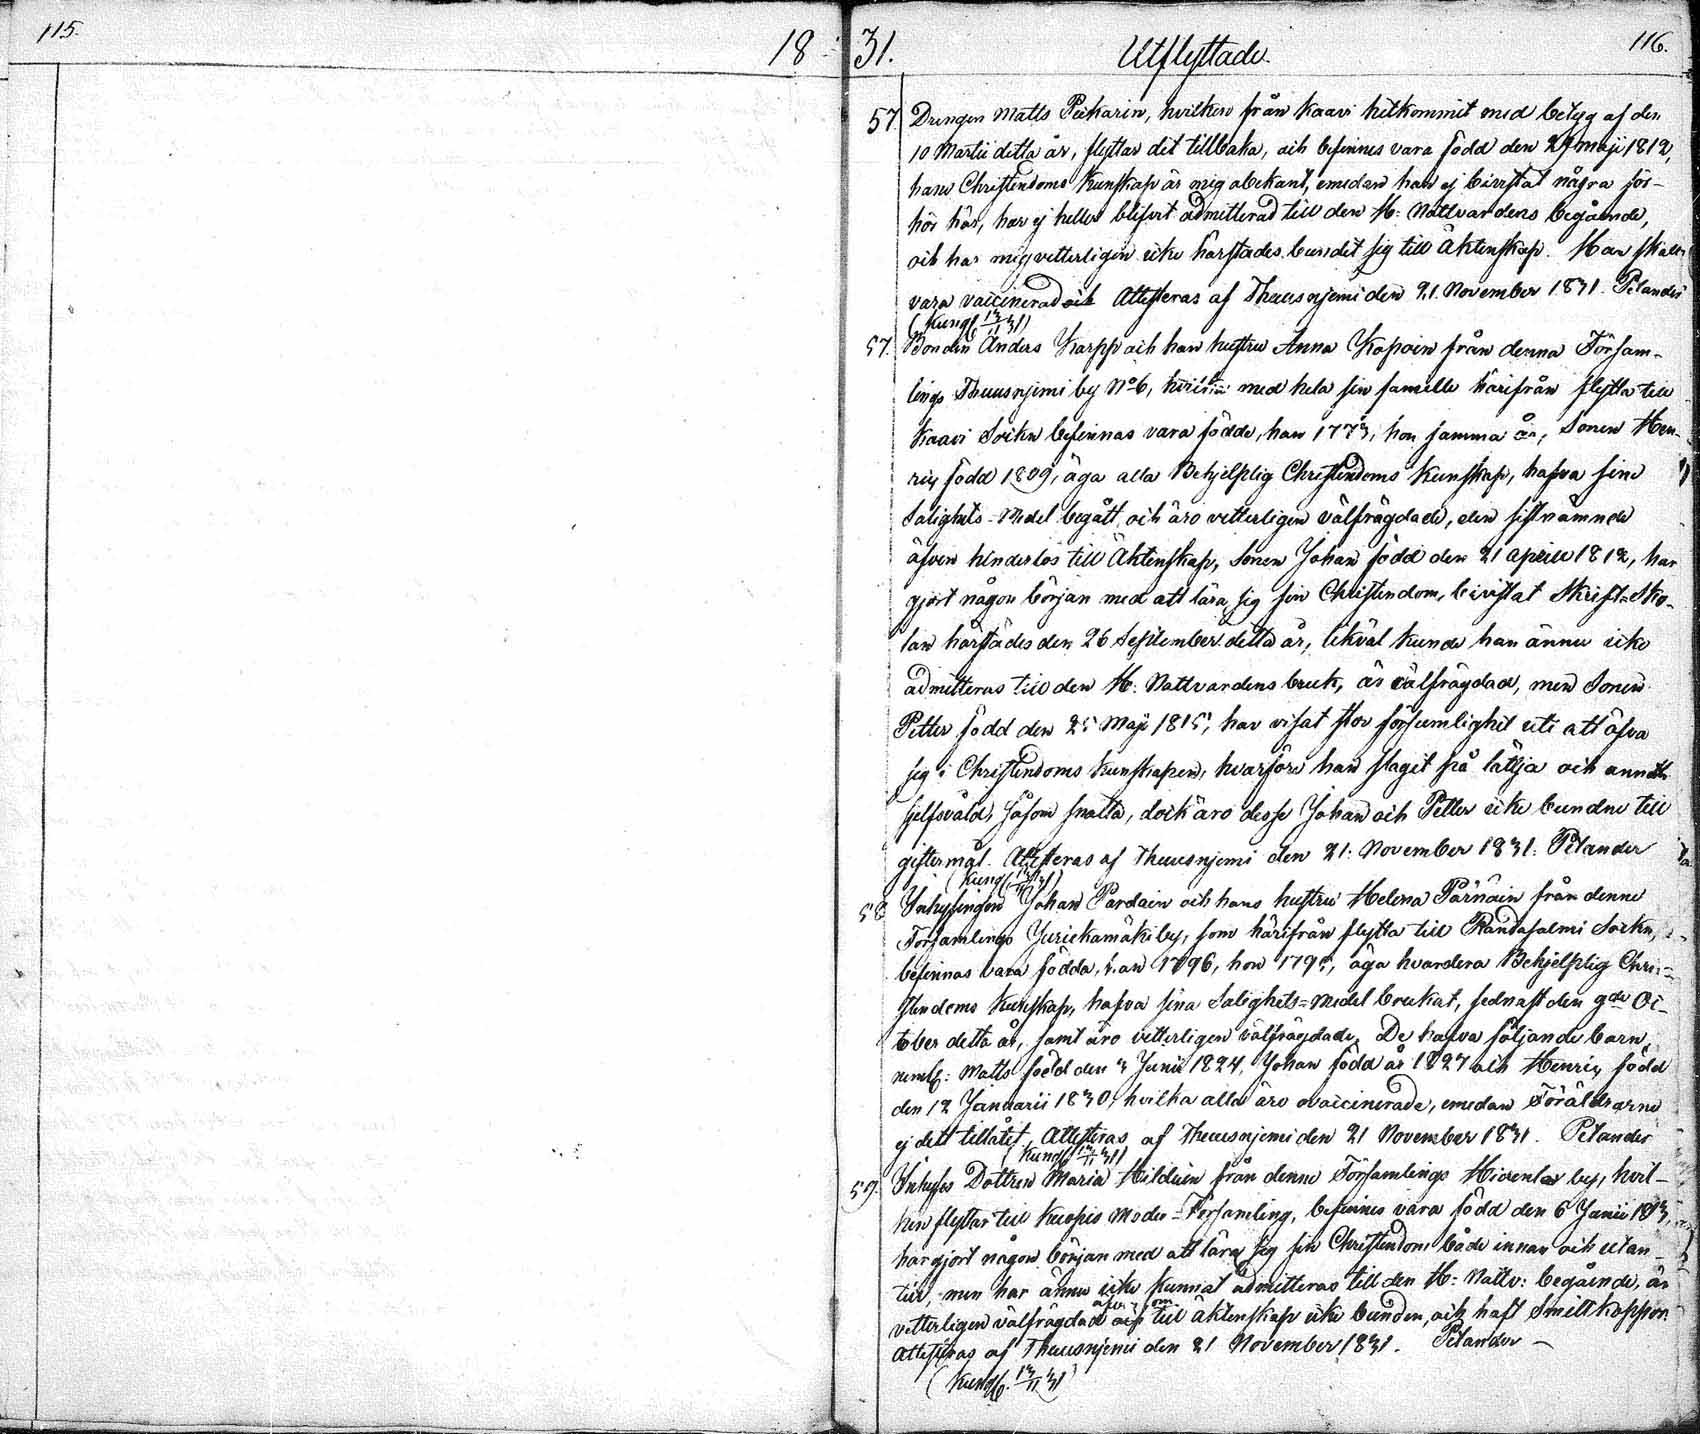 115.
18
31.
Utflyttade.
116.
57. Drengen Matts Pekarin, hvilken från Kaavi hitkommit med betyg af den
10 Martii detta år, flyttar dit tillbaka, och befinnes vara född den 29 Maji 1812,
hans Christendoms Kunskap är mig obekant, emedan han ej bivistat några för-
hör här, har ej heller blifvit admitterad till den H: Nattvardens begående,
och har mig vetterligen icke härstädes bundit sig till Äktenskap. Han skall
vara vaccinerad och Attesteras af Thuusnjemi den 21. November 1831. Pelander
(Kungf. 13/11 31)
57. Bonden Anders Karpp och hans hustru Anna Kopoin från denna Försam-
lings Thuusnjemi by No 6, hvilka med hela sin famille härifrån flytta till
Kaavi Sockn befinnas vara födde, han 1773, hon samma år, Sonen Hen-
ric född 1809, äga alla Behjelplig Christendoms Kunskap, hafva sine
Salighets-Medel begått, och äro vetterligen välfrägdade, den sistnämnde
äfven hinderlös till Äktenskap, Sonen Johan född den 21 April 1812, har
gjort någon början med att lära sig sin Christendom, bivistat Skrift-Sko-
lan härstädes den 26 September detta år, likväl kunde han ännu icke
admitteras till den H: Nattvardens bruk, är välfrägdad, men Sonen
Petter född den 25 Maji 1815, har visat stor försumlighet uti att öfva
sig i Christendoms Kunskapen, hvarföre han slagit på lättja och annat
sjelfsvåld, såsom snatta, dock äro desse Johan och Petter icke bundne till
giftermål. Attesteras af Thuusnjemi den 21. November 1831. Pelander
(Kungf. 13/11 31)
58 Inhysingen Johan Pardain och hans hustru Helena Pärnäin från denne
Församlings Jurickamäki by, som härifrån flytta till Randasalmi Sockn,
befinnas vara födda, han 1796, hon 1795, äga hvardera Behjelplig Chri-
stendoms Kunskap, hafva sina Salighets-Medel brukat, sednast den 9de Oc-
tober detta år, samt äro vetterligen välfrägdade. De hafva följande barn,
neml: Matts född den 3 Junii 1824, Johan född år 1827 och Henric född
den 12 Januarii 1830, hvilka alla äro ovaccinerade, emedan Föräldrarne
ej dett tillåtit. Attesteras af Thuusnjemi den 21 November 1831. Pelander
(Kungf. 13/11 31)
59. Inhyses Dottren Maria Hilduin från denne Församlings by, hvil-
ken flyttar till Kuopio Moder-Församling, befinnes vara född den 6 Junii 1813,
har gjort någon början med att lära sig sin Christendom både innan och utan-
till, men har ännu icke kunnat admitteras till den H: Nattv: begående, är
vetterligen välfrägdad och till äktenskap icke bunden, och haft Smittkoppor.
Attesteras af Thuusnjemi den 21 November 1831. Pelander
(Kungf. 13/11 31)